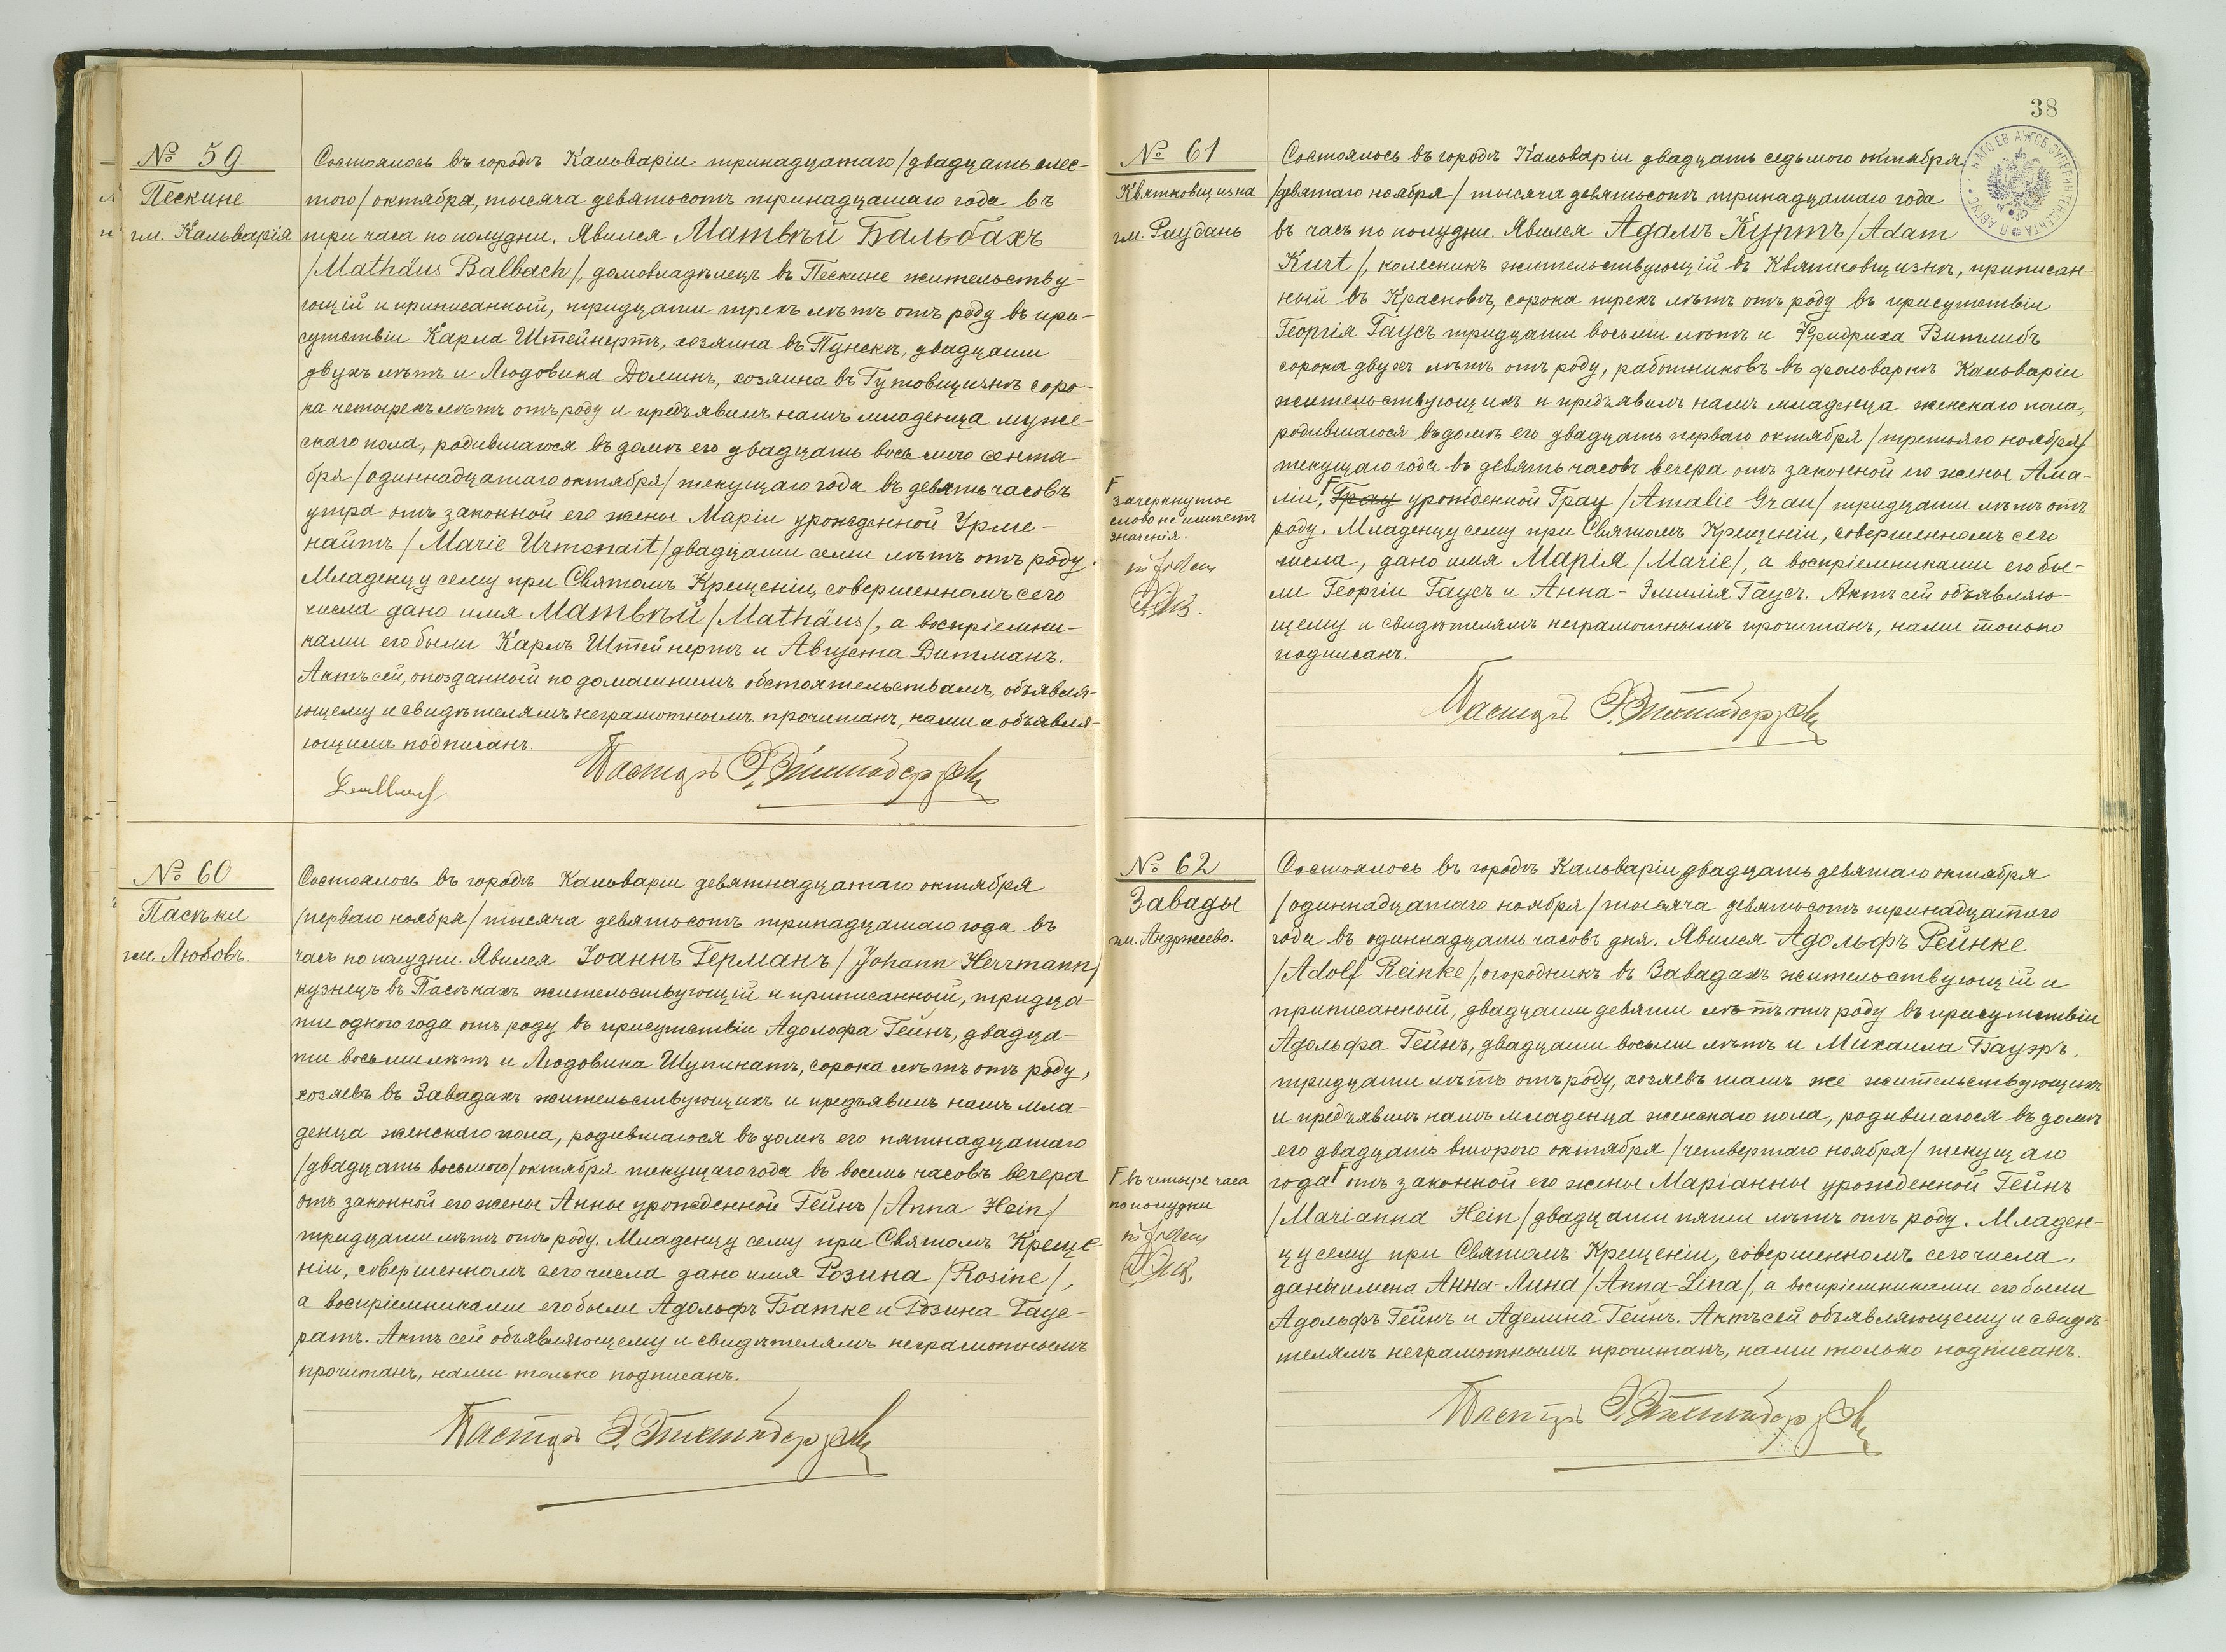 № 59
Пескине
гм. Кальварія
Состоялось въ городѣ Кальваріи тринадцатаго /двадцать шес-
того/ октября, тысяча девятьсотъ тринадцатаго года въ
три часа по полудни. Явился Матвѣй Бальбахъ
/Mathäus Balbach/, домовладѣлецъ въ Пескине жительству-
ющій и приписанный, тридцати трехъ лѣтъ отъ роду въ при-
сутствіи Карла Штейнертъ, хозяина въ Пунскѣ, двадцати
двухъ лѣтъ и Людовика Доминъ, хозяина въ Гутовщизнѣ соро-
ка четырехъ лѣтъ отъ роду и предъявилъ намъ младенца муже-
скаго пола, родившагося въ домѣ его двадцать восьмого сентя-
бря /одиннадцатаго октября/ текущаго года въ девять часовъ
утра отъ законной его жены Маріи урожденной Урме-
найтъ /Marie Urmenait/ двадцати семи лѣтъ отъ роду.
Младенцу сему при Святомъ Крещеніи, совершенномъ сего
числа дано имя Матвѣй /Mathäus/, а воспріемни-
ками его были Карлъ Штейнертъ и Августа Дитманъ.
Актъ сей, опозданный по домашнимъ обстоятельствамъ, объявля-
ющему и свидѣтелямъ неграмотнымъ прочитанъ, нами и объявля-
ющимъ подписанъ.
Пасторъ
№ 60
Пасѣки
гм. Любовъ.
Состоялось въ городѣ Кальваріи девятнадцатаго октября
/перваго ноября/ тысяча девятьсотъ тринадцатаго года въ
часъ по полудни. Явился Іоаннъ Германъ /Johann Herrmann/
кузнецъ въ Пасѣкахъ жительствующій и приписанный, тридца-
ти одного года отъ роду въ присутствіи Адольфа Гейнъ, двадца-
ти восьми лѣтъ и Людовика Шупинатъ, сорока лѣтъ отъ роду,
хозяевъ въ Завадахъ жительствующихъ и предъявилъ намъ мла-
денца женскаго пола, родившагося въ домѣ его пятнадцатаго
/двадцать восьмого/ октября текущаго года въ восемь часовъ вечера
отъ законной его жены Анны урожденной Гейнъ /Anna Hein/
тридцати лѣтъ отъ роду. Младенцу сему при Святомъ Креще-
ніи, совершенномъ сего числа дано имя Розина /Rosine/,
а воспріемниками его были Адольфъ Батке и Розина Гауе-
ратъ. Актъ сей объявляющему и свидѣтелямъ неграмотнымъ
прочитанъ, нами только подписанъ.
Пасторъ
38
№ 61
Квятковщизна
гм. Раудань
Состоялось въ городѣ Кальваріи двадцать седьмого октября
/девятаго ноября/ тысяча девятьсотъ тринадцатаго года
въ часъ по полудни. Явился Адамъ Куртъ /Adam
Kurt/, колесникъ жительствующій въ Квятковщизнѣ, приписан-
ный въ Красновѣ, сорока трехъ лѣтъ отъ роду въ присутствіи
Георгія Гаусъ тридцати восьми лѣтъ и Фридриха Витлибъ
сорока двухъ лѣтъ отъ роду, работниковъ въ фольваркѣ Кальваріи
жительствующихъ и предъявилъ намъ младенца женскаго пола,
родившагося въ домѣ его двадцать перваго октября /третьяго ноября/
текущаго года въ девять часовъ вечера отъ законной его жены Ама-
ліи, Грау урожденной Грау /Amalie Grau/ тридцати лѣтъ отъ
роду. Младенцу сему при Святомъ Крещеніи, совершенномъ сего
числа, дано имя Марія /Marie/, а воспріемниками его бы-
ли Георгій Гаусъ и Анна-Эмилія Гаусъ. Актъ сей объявляю-
щему и свидѣтелямъ неграмотнымъ прочитанъ, нами только
подписанъ.
зачеркнутое
слово не имѣетъ
значенія.
Пасторъ
№ 62
Завады
гм. Андржеево.
Состоялось въ городѣ Кальваріи двадцать девятаго октября
/одиннадцатаго ноября/ тысяча девятьсотъ тринадцатаго
года въ одиннадцать часовъ дня. Явился Адольфъ Рейнке
/Adolf Reinke/, огородникъ въ Завадахъ жительствующій и
приписанный, двадцати девяти лѣтъ отъ роду въ присутствіи
Адольфа Гейнъ, двадцати восьми лѣтъ и Михаила Бауэръ,
тридцати лѣтъ отъ роду, хозяевъ тамъ же жительствующихъ
и предъявилъ намъ младенца женскаго пола, родившагося въ домѣ
его двадцать второго октября /четвертаго ноября/ текущаго
года отъ законной его жены Маріанны урожденной Гейнъ
/Marianna Hein/ двадцати пяти лѣтъ отъ роду. Младен-
цу сему при Святомъ Крещеніи, совершенномъ сего числа,
даны имена Анна-Лина /Anna-Lina/, а воспріемниками его были
Адольфъ Гейнъ и Аделина Гейнъ. Актъ сей объявляющему и свидѣ-
телямъ неграмотнымъ прочитанъ, нами только подписанъ.
въ четыре часа
по полудни
Пасторъ